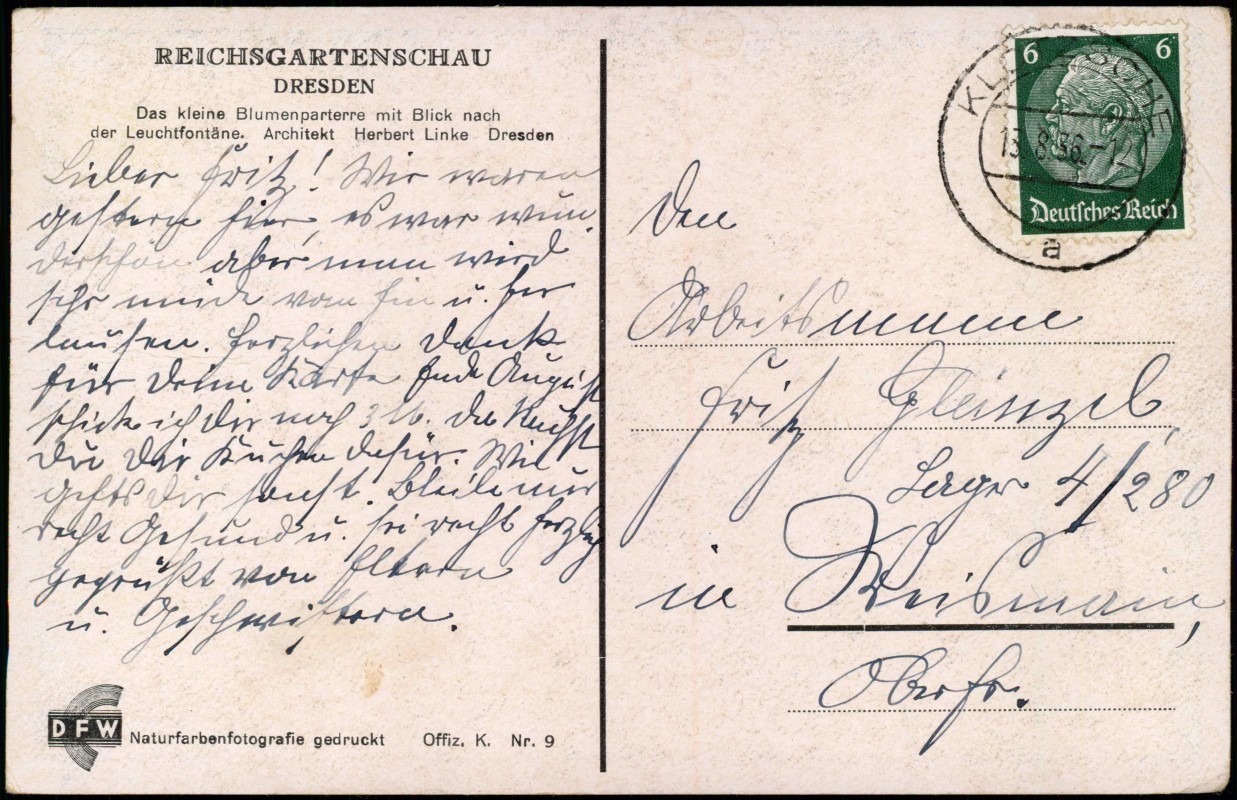 REICHSGARTENSCHAU
DRESDEN
Das kleine Blumenparterre mit Blick nach
der Leuchtfontäne. Architekt Herbert Linke Dresden
Lieber Fritz! Wir waren
gestern hier, es war wun-
derschön aber man wird
sehr müde vom hin u. her
laufen. Herzlichen Dank
für Deine Karte Ende August
schicke ich Dir noch 3 M. da kaufst
Du Dir Kuchen dafür. Wie
gehts Dir sonst. Bleibe nur
recht Gesund u. sei recht herzlich
gegrüßt von Eltern
u. Geschwistern.
DFW
Naturfarbenfotografie gedruckt Offiz. K. Nr. 9
6 6
Deutsches Reich
KLOTZSCHE
13.8.36.-12
a
Den
Arbeitsmann
Fritz
Lager 4/280
in Weismain,
Oberfr.